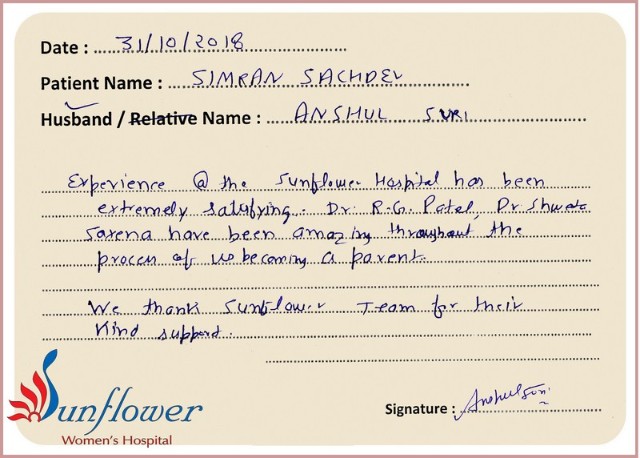 Date : 31/10/2018
Patient Name : SIMRAN SACHDEV
Husband / Relative Name : ANSHUL SURI
Experience @ the Sunflower Hospital has been
extremely satisfying. Dr. R.G. Patel, Dr Shweta
Saxena have been amazing throughout the
process of us becoming a parent.
We thank Sunflower Team for their
kind support.
Sunflower
Women's Hospital
Signature : Anshul Suri